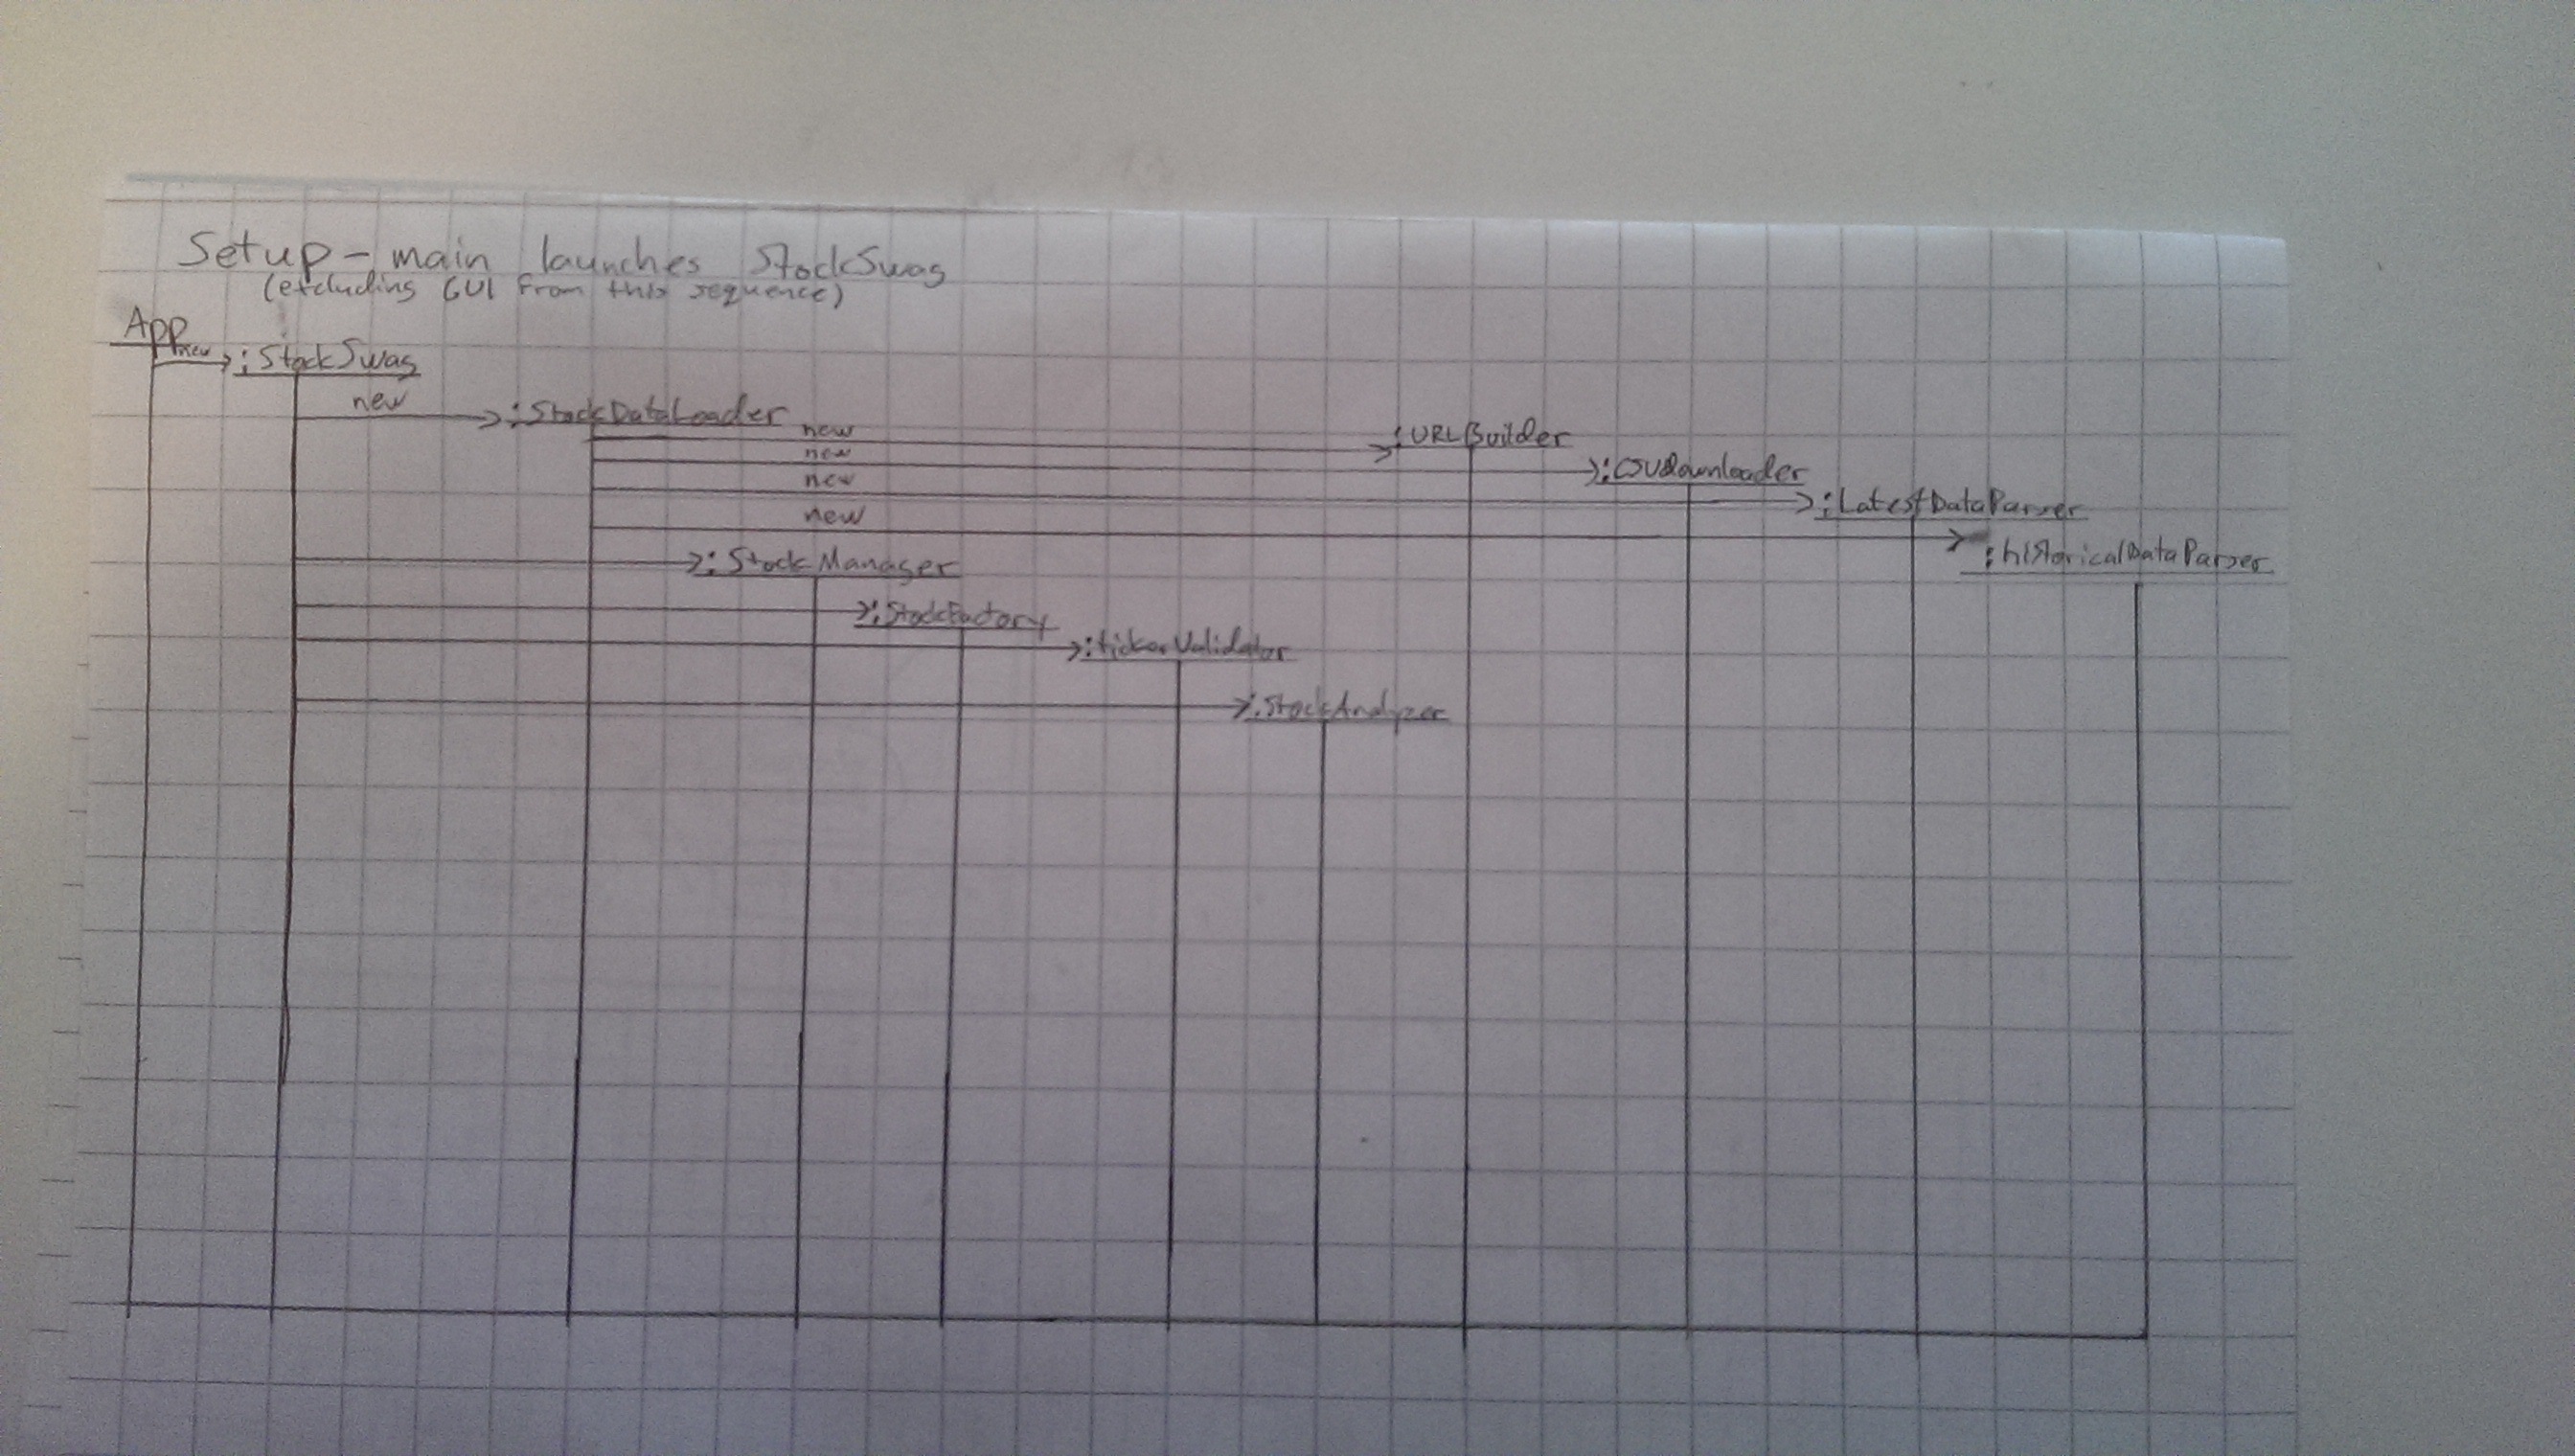 Setup - main launches StockSwag
(excluding GUI from this sequence)
App
new
:StockSwag
new
:StockDataLoader
new
:URLBuilder
new
:CSVDownloader
new
:LatestDataParser
new
:historicalDataParser
:StockManager
:StockFactory
:tickerValidator
:StockAnalyzer